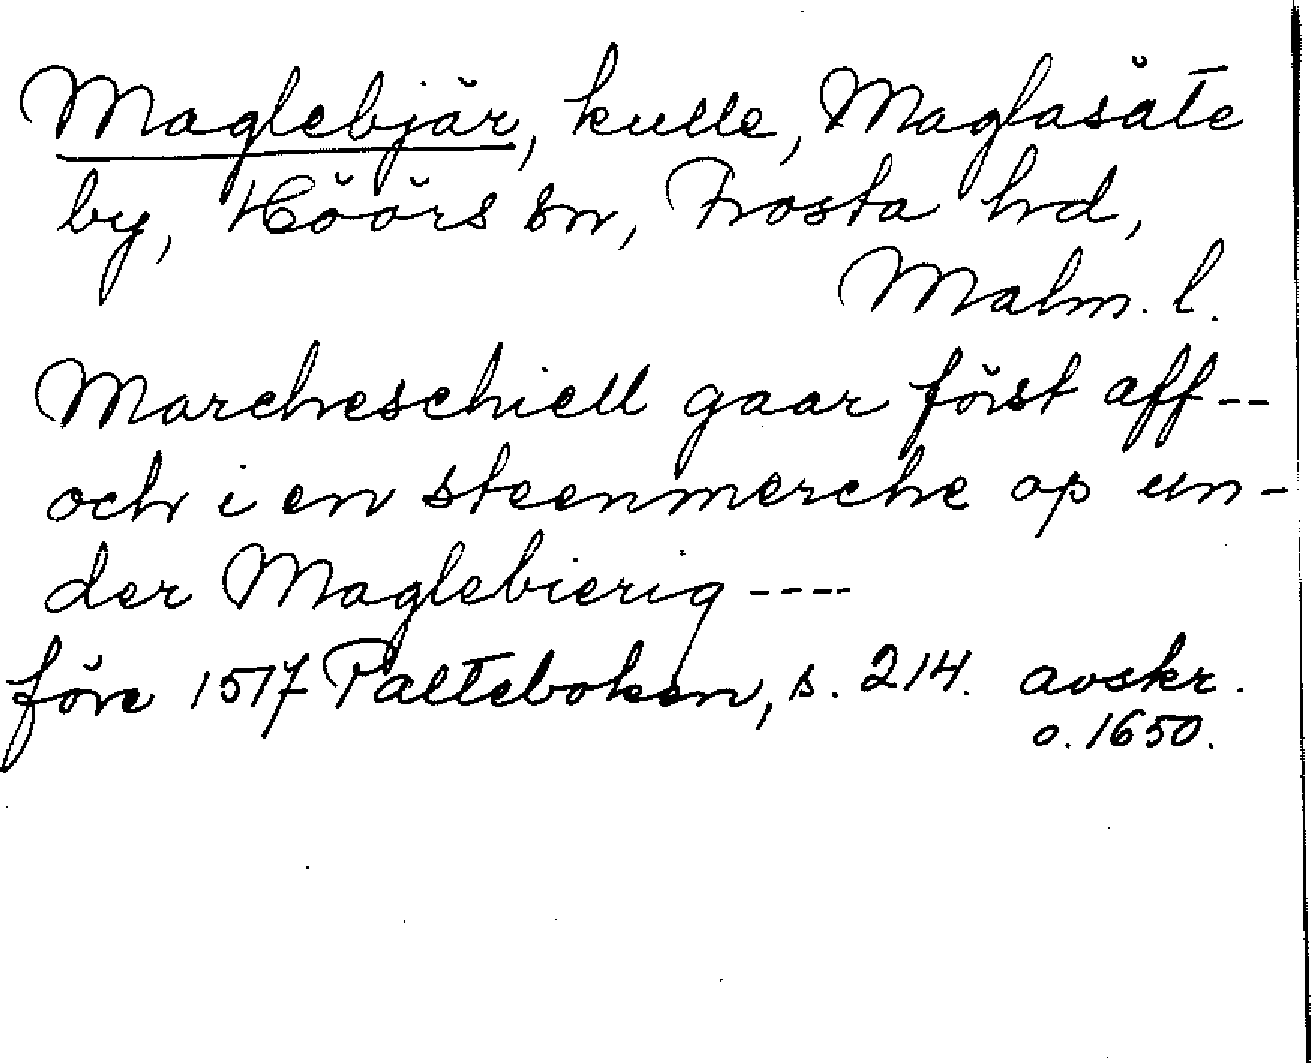 Maglebjär, kulle, Maglasäte
by, Höörs sn, Frosta hd,
Malm. l.
Marcheschiell gaar först aff --
och i en steenmerche op un-
der Maglebierig ----
före 1517 Palteboken, s. 214. avskr.
o. 1650.